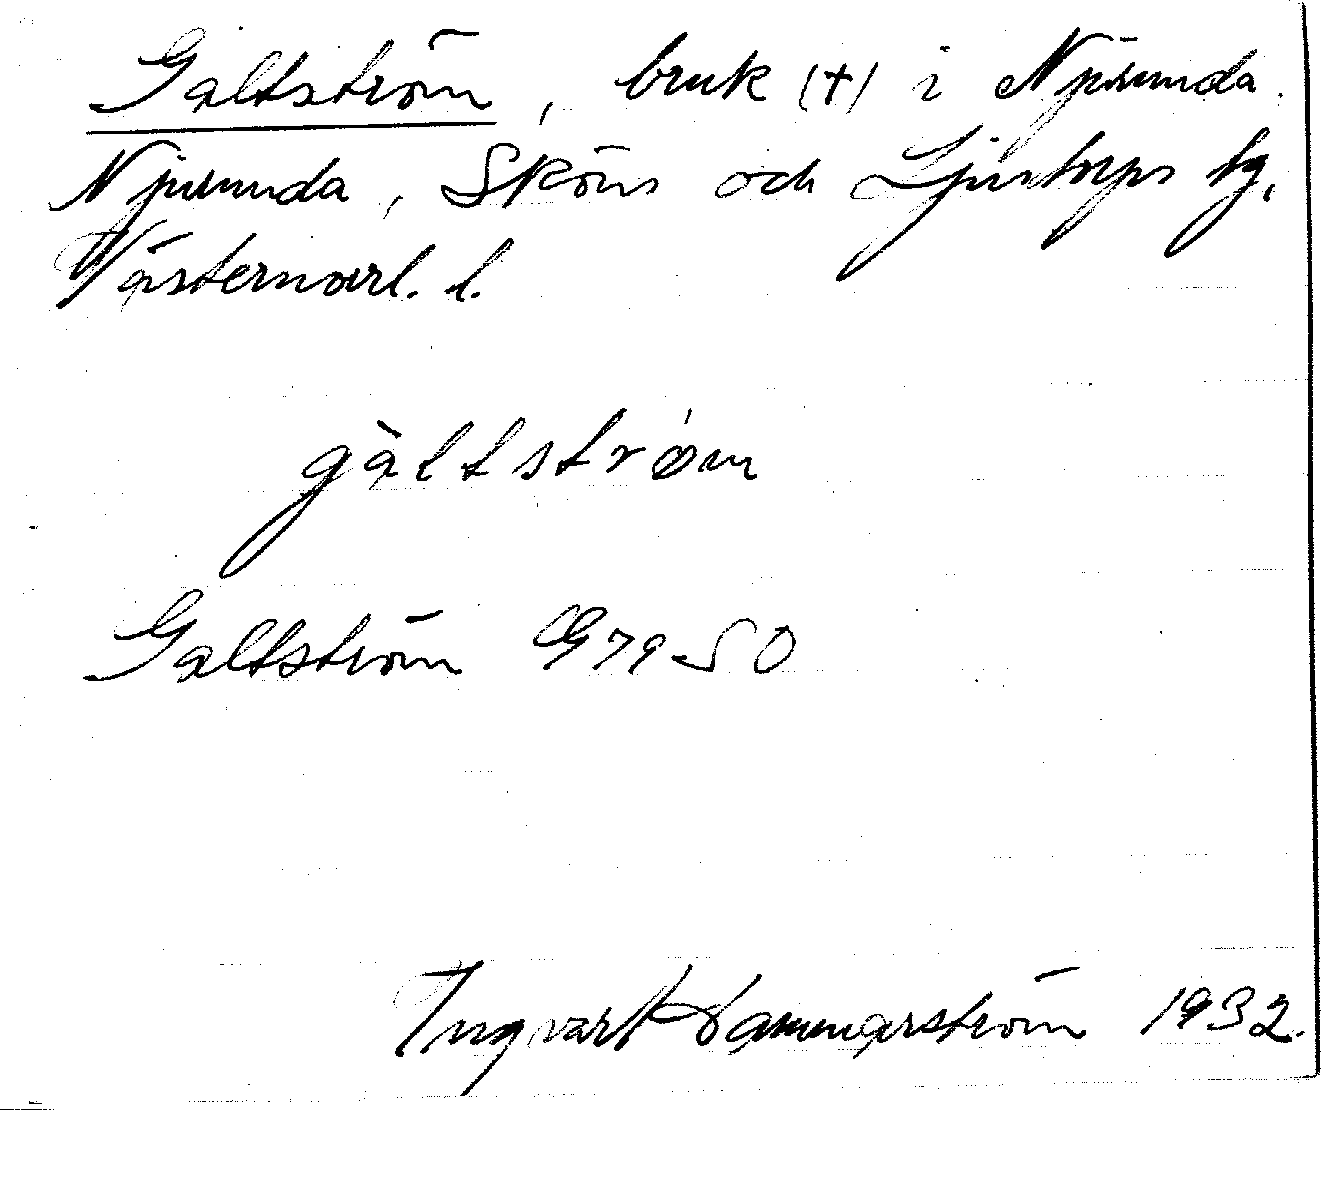 Galtström, bruk (+) i Njurunda.
Njurunda, Sköns och Ljustorps tg,
Västernorrl. l.
gàltstrø'm
Galtström G79SO
Ingvart Hammarström 1932.